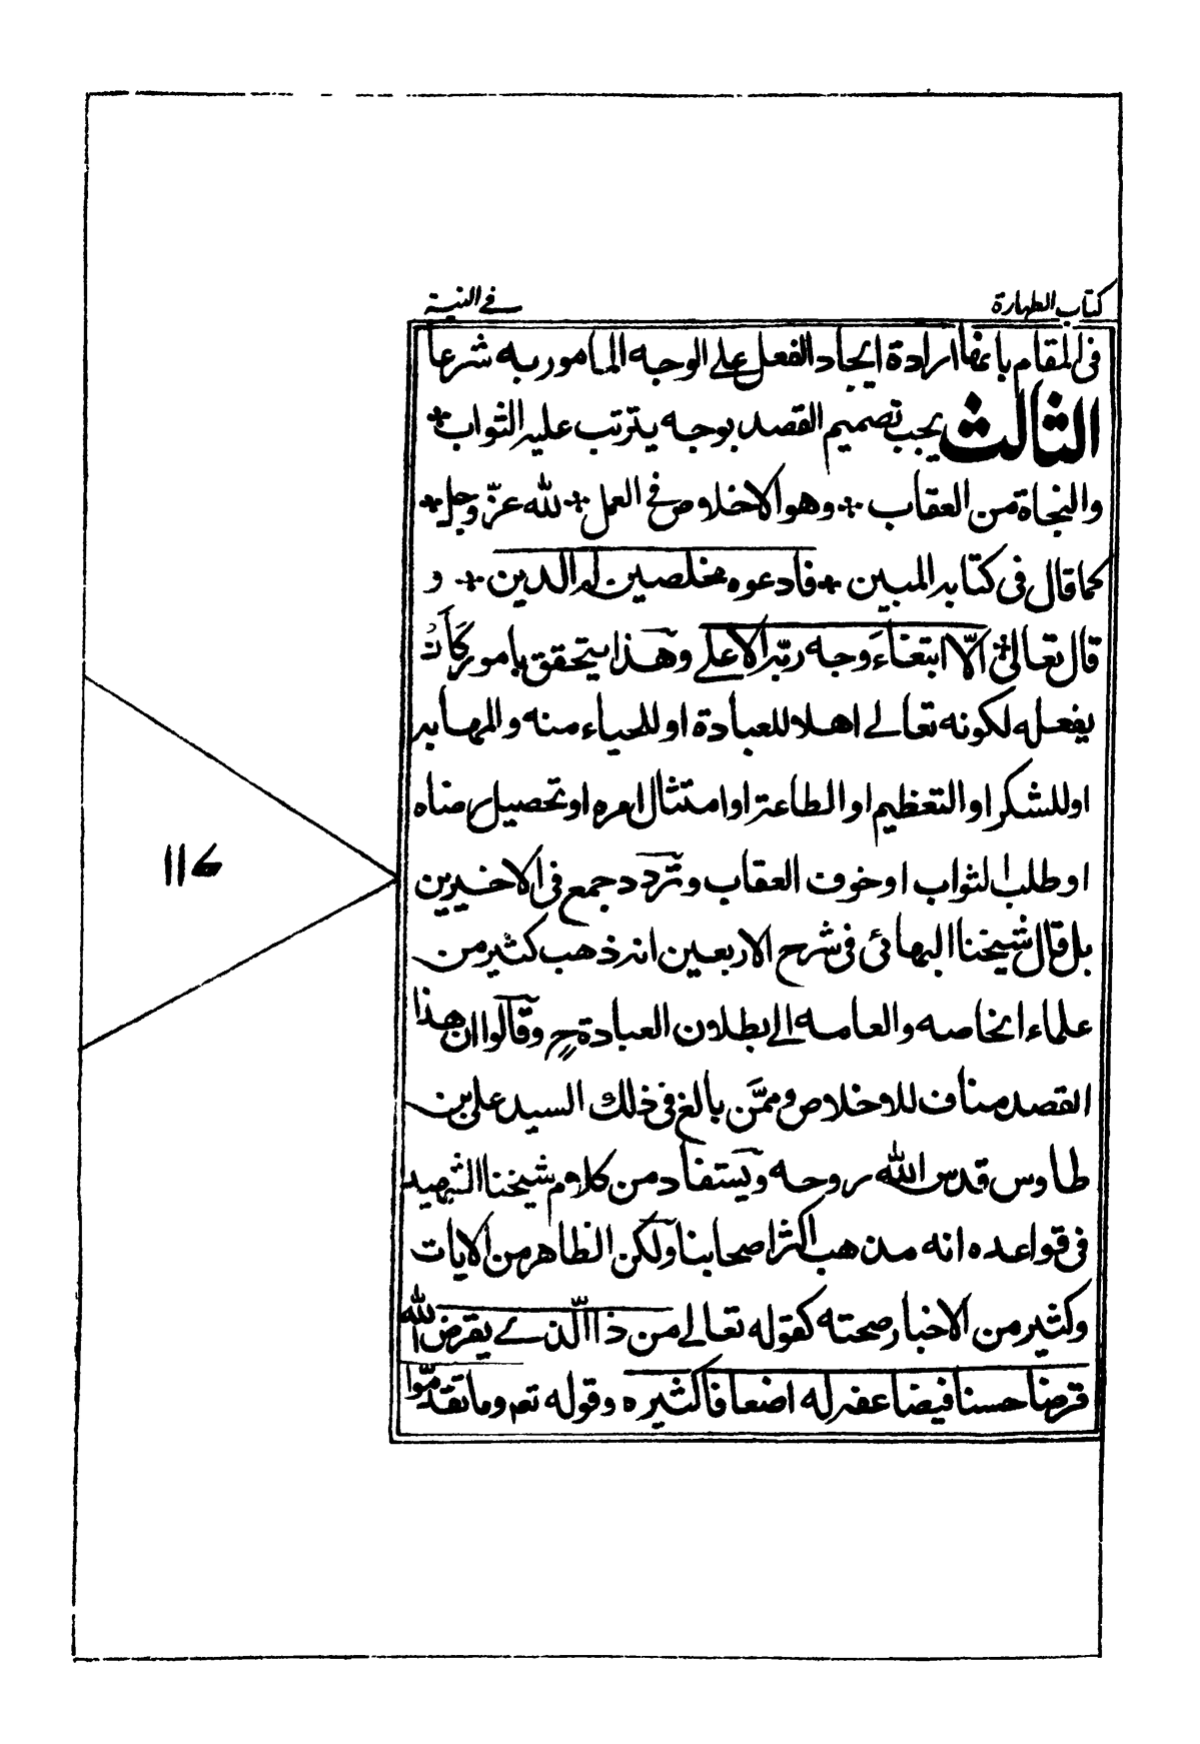 كتاب الطهارة
في النية
في المقام بانها ارادة ايجاد الفعل على الوجه المامور به شرعا
الثالث يجب تصميم القصد بوجه يترتب عليه الثواب
والنجاة من العقاب وهو الاخلاص في العمل لله عزّ وجل
كما قال في كتابه المبين فادعوه مخلصين له الدين و
قال تعالى الّا ابتغاءَ وجه ربّه الاعلى وهذا يتحقق بامور كَاَنْ
يفعله لكونه تعالى اهلا للعبادة او للحياء منه والمهابه
او للشكر او التعظيم او الطاعة او امتثال امره او تحصيل رضاه
او طلب الثواب او خوف العقاب وتردد جمع في الاخيرين
بل قال شيخنا البهائي في شرح الاربعين انه ذهب كثير من
علماء الخاصه والعامه الى بطلان العبادة ح وقالوا ان هذا
القصد مناف للاخلاص وممَّن بالغ في ذلك السيد علي بن
طاوس قدس الله روحه ويستفاد من كلام شيخنا الشهيد
في قواعده انه مذهب اكثر اصحابنا ولكن الظاهر من الايات
وكثير من الاخبار صحته كقوله تعالى من ذا الّذي يقرض الله
قرضا حسنا فيضاعفه له اضعافا كثيره وقوله تعم وما تقدموّا